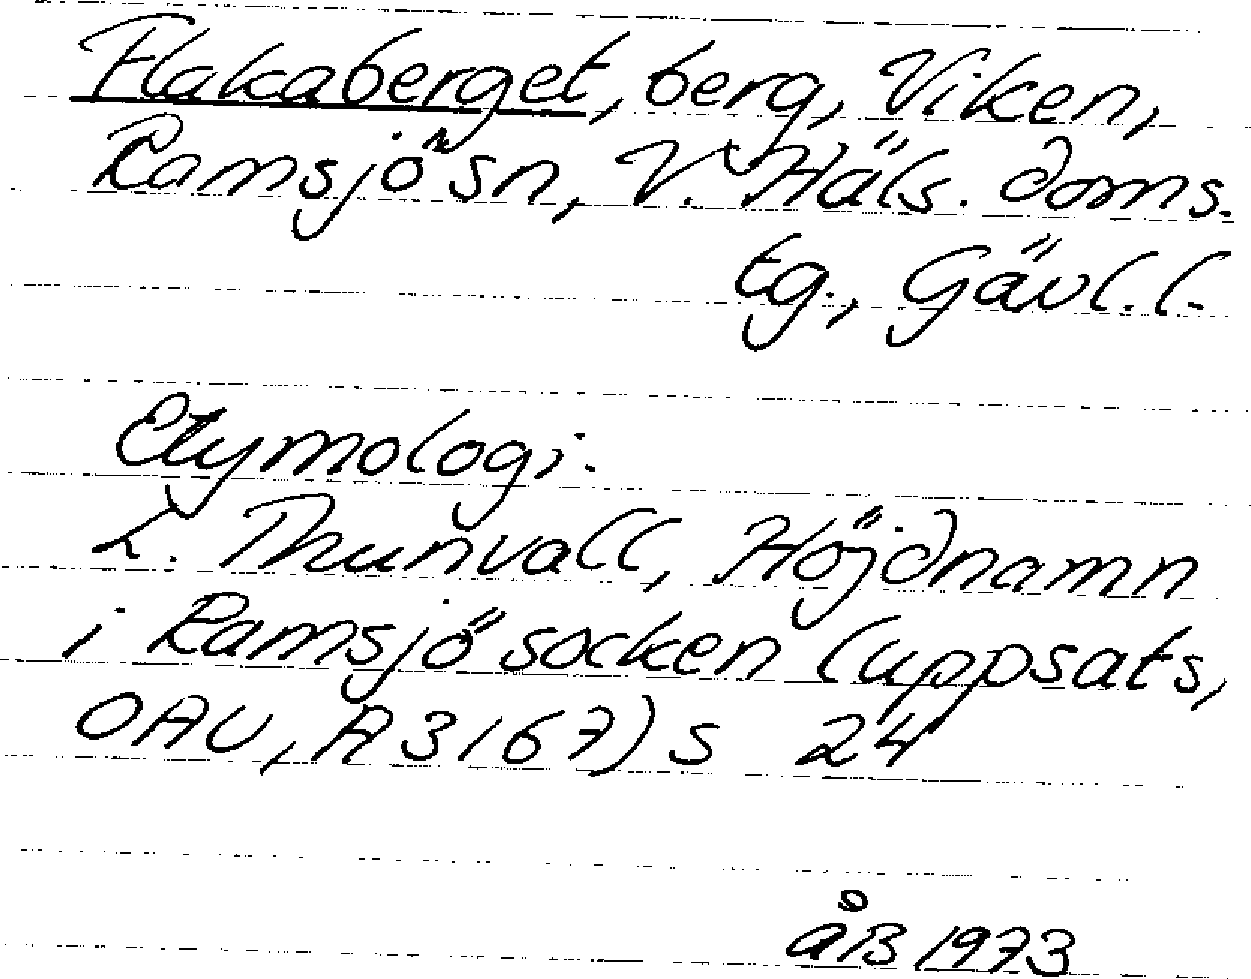 Flakaberget, berg, Viken,
Ramsjö sn, V. Häls. doms.
tg., Gävl. l.
Etymologi:
L. Thunvall, Höjdnamn
i Ramsjö socken (uppsats,
OAU, A 3167) s 24
ÅB 1973